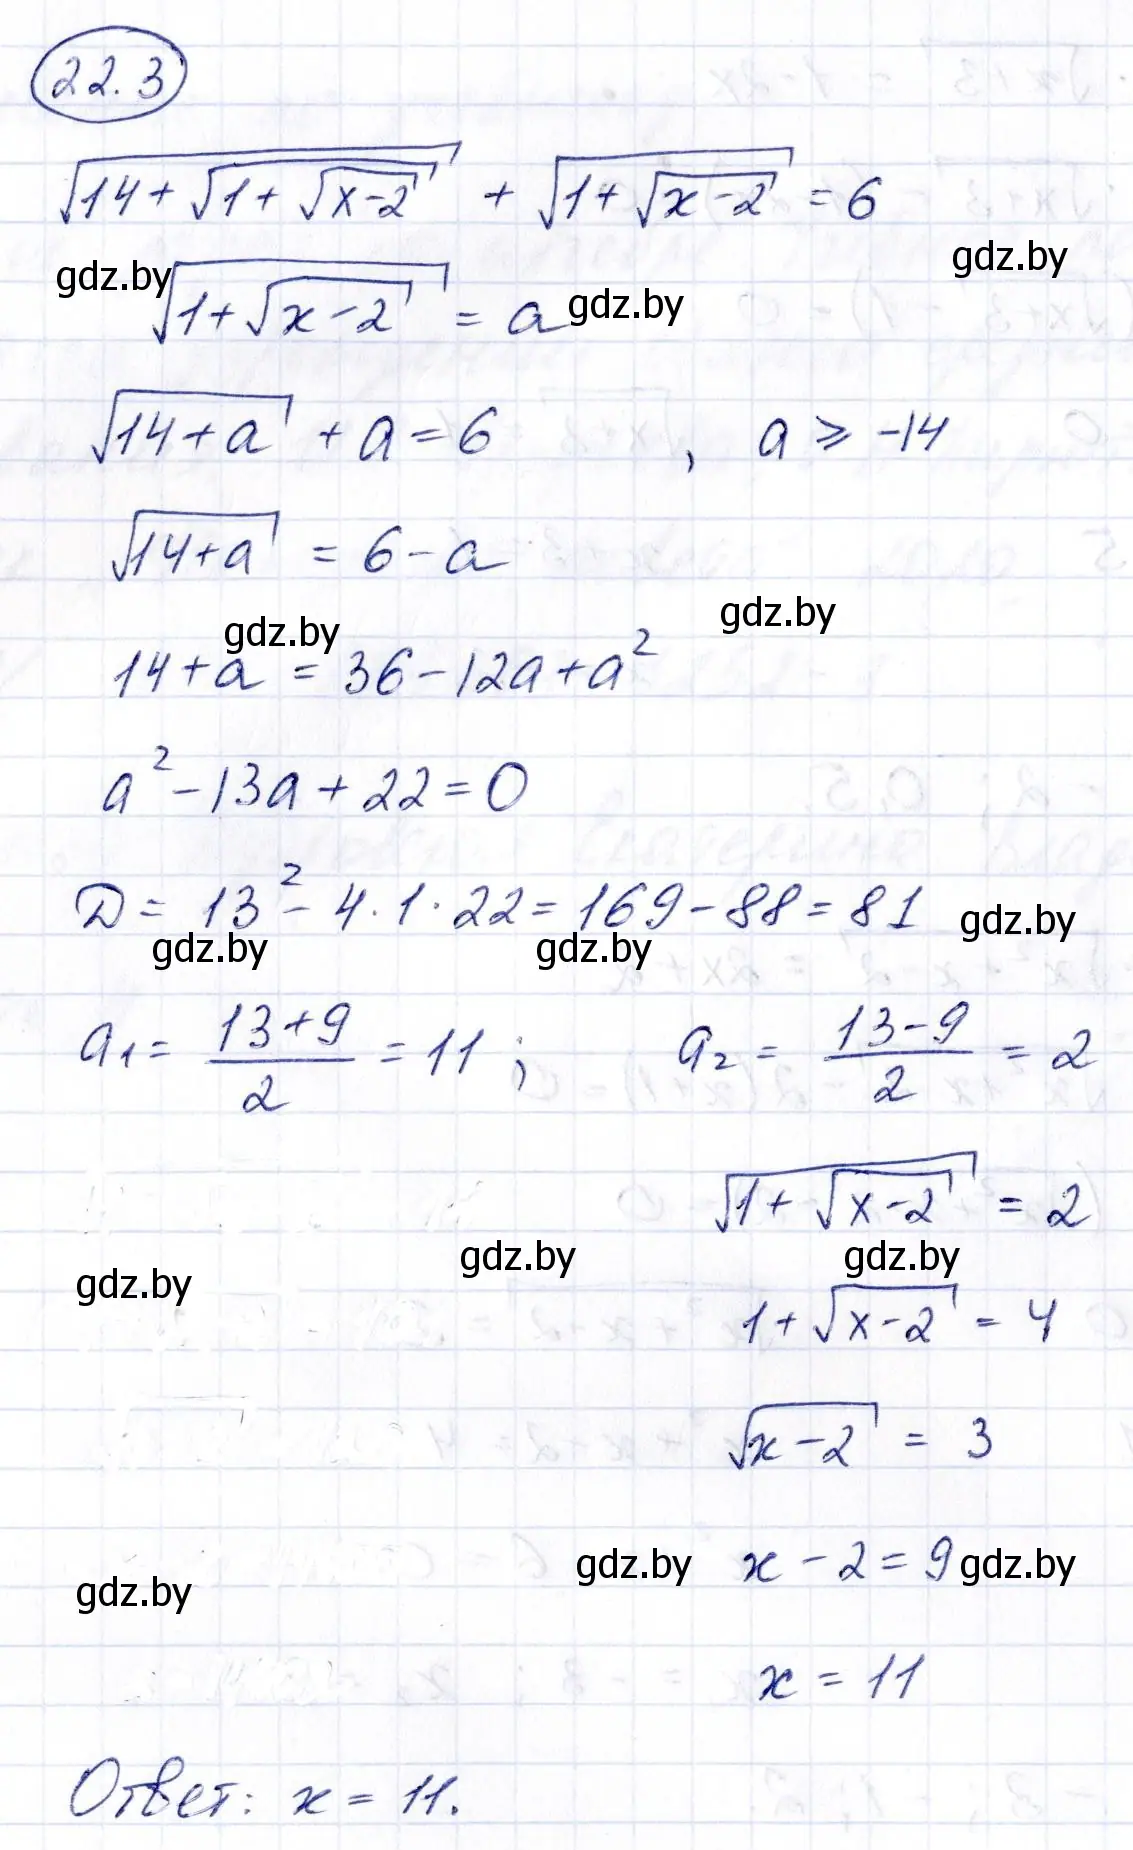 22.3
√(14+√(1+√(x-2))) + √(1+√(x-2)) = 6
gdz.by
gdz.by
√(1+√(x-2)) = a
gdz.by
√(14+a) + a = 6 , a ⩾ -14
√(14+a) = 6 - a
gdz.by
gdz.by
14 + a = 36 - 12a + a²
a² - 13a + 22 = 0
D = 13² - 4·1·22 = 169 - 88 = 81
gdz.by
gdz.by
gdz.by
a₁ = (13+9)/2 = 11 ; a₂ = (13-9)/2 = 2
√(1+√(x-2)) = 2
gdz.by
gdz.by
gdz.by
1 + √(x-2) = 4
√(x-2) = 3
gdz.by
x - 2 = 9
gdz.by
gdz.by
x = 11
Ответ: x = 11.